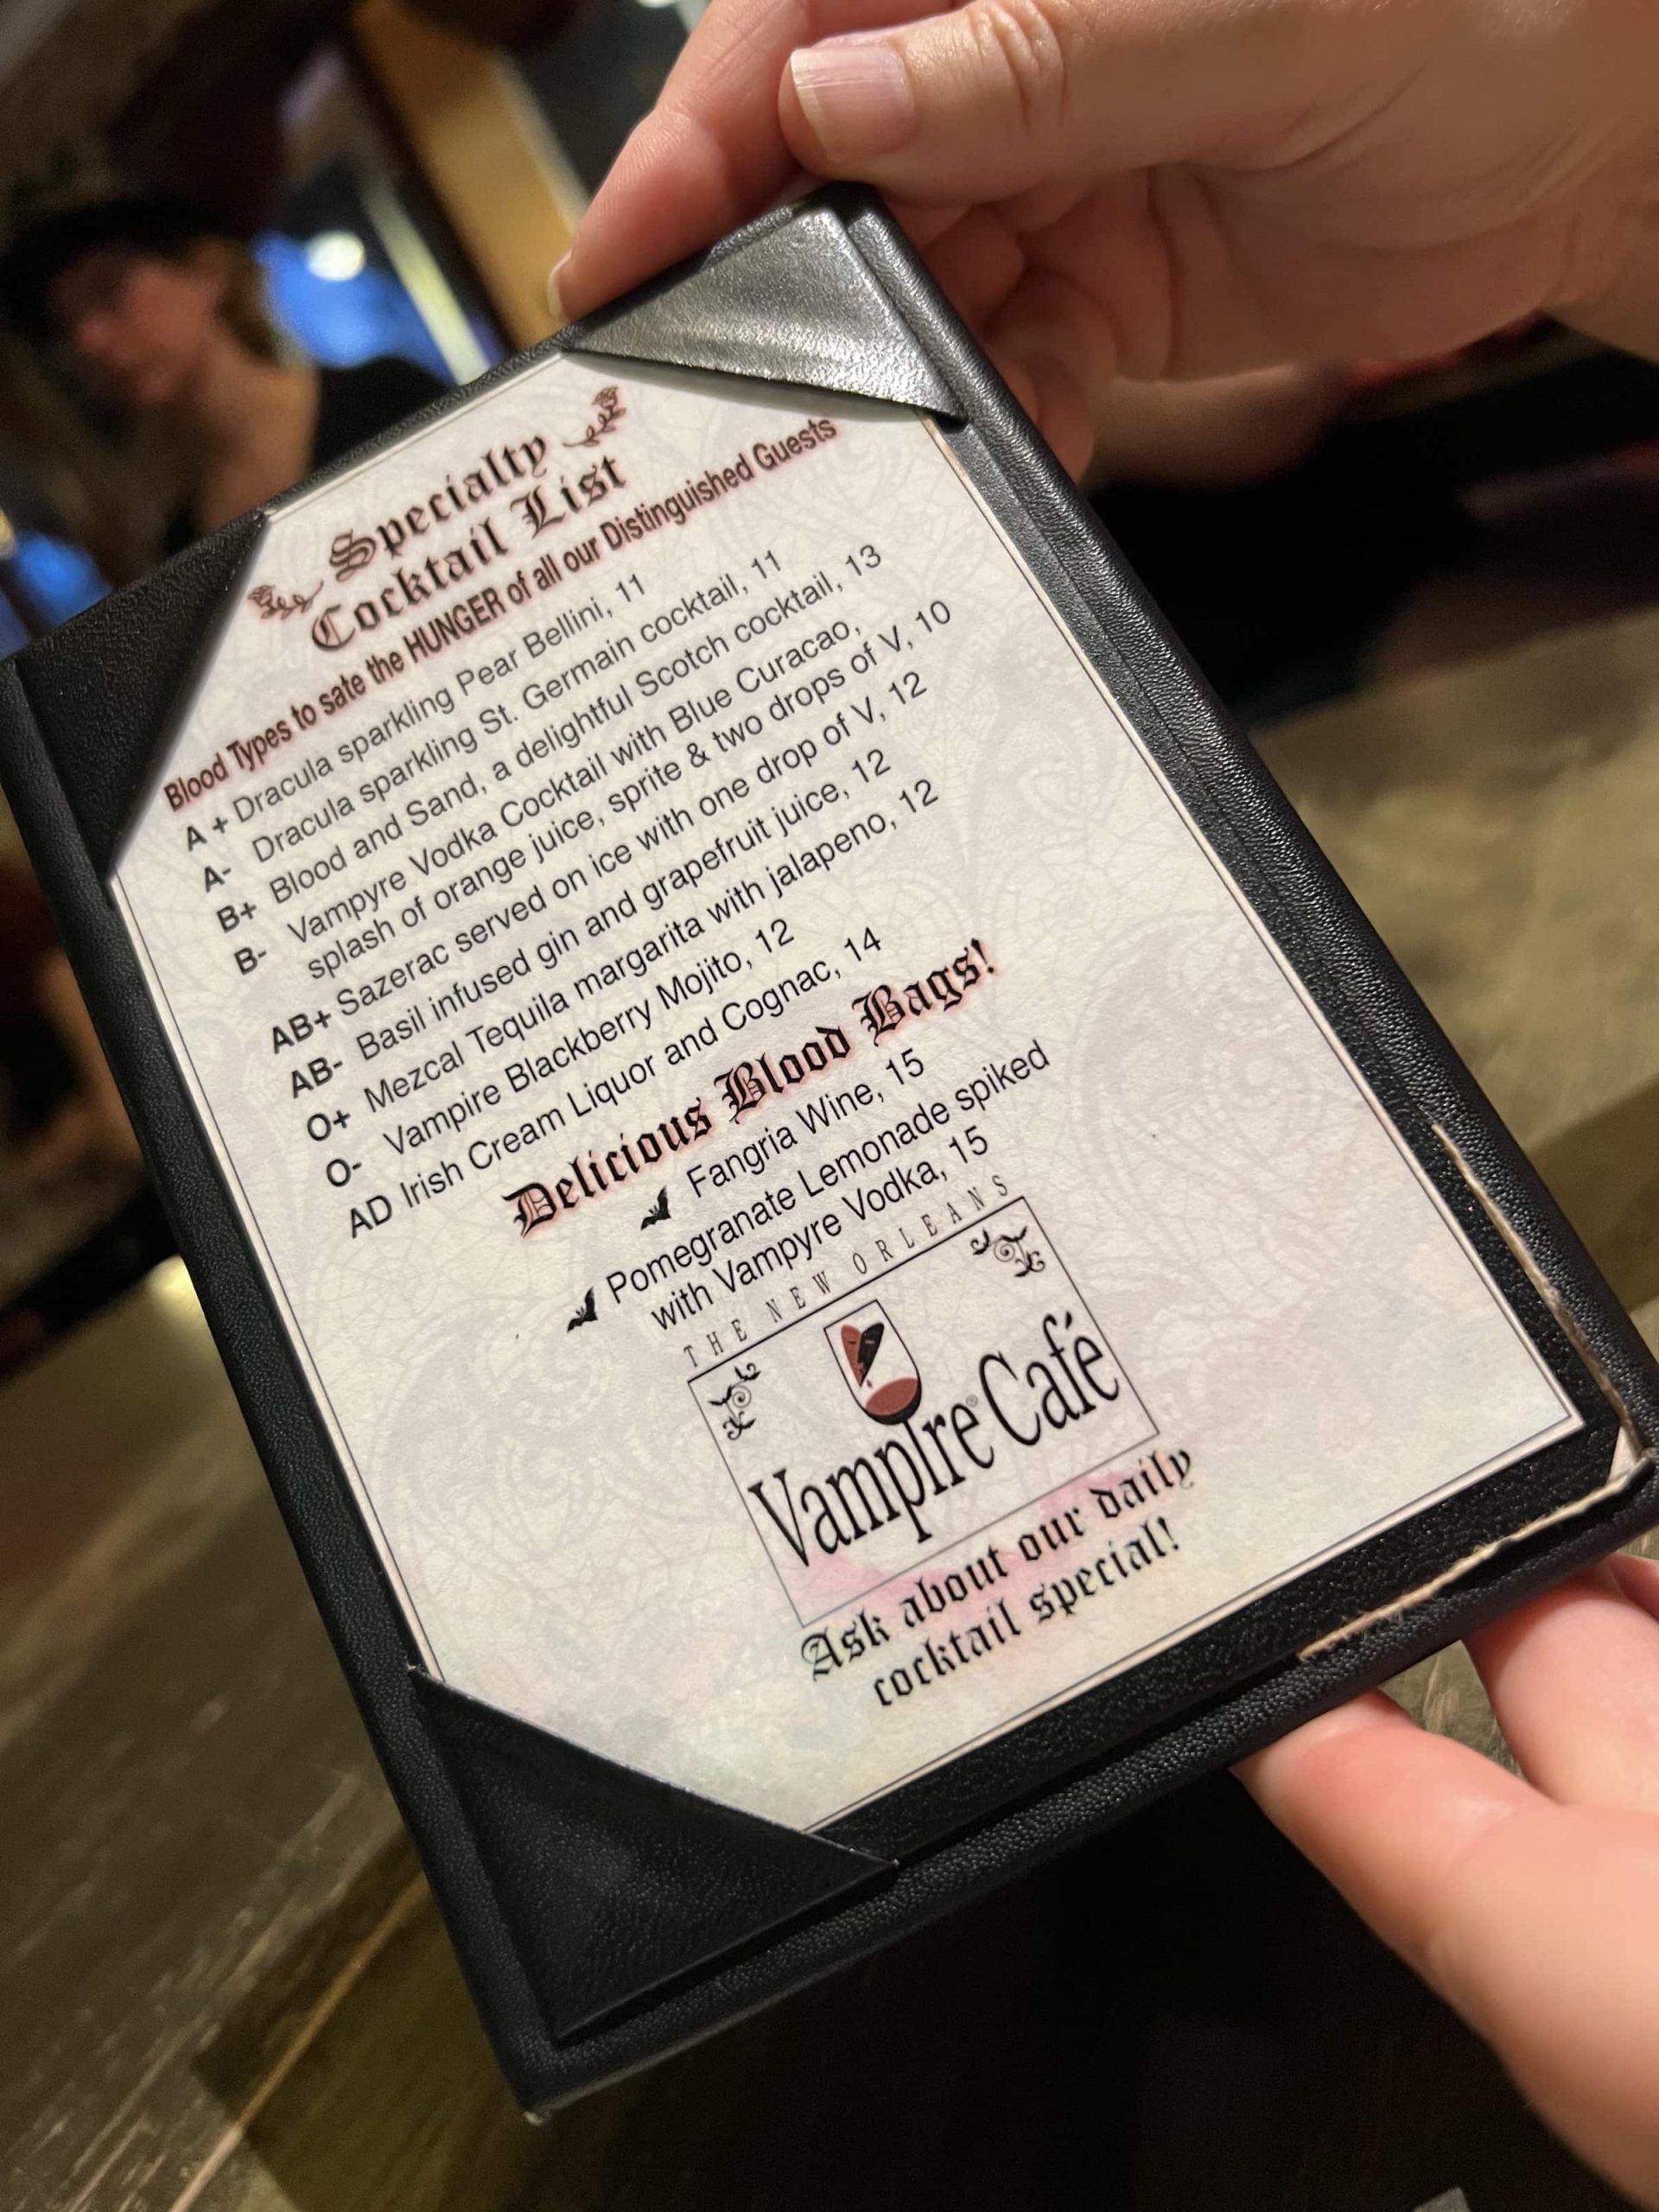 Specialty
Cocktail List
Blood Types to sate the HUNGER of all our Distinguished Guests
A + Dracula sparkling Pear Bellini, 11
A- Dracula sparkling St. Germain cocktail, 11
B+ Blood and Sand, a delightful Scotch cocktail, 13
B- Vampyre Vodka Cocktail with Blue Curacao,
splash of orange juice, sprite & two drops of V, 10
AB+ Sazerac served on ice with one drop of V, 12
AB- Basil infused gin and grapefruit juice, 12
O+ Mezcal Tequila margarita with jalapeno, 12
O- Vampire Blackberry Mojito, 12
AD Irish Cream Liquor and Cognac, 14
Delicious Blood Bags!
Fangria Wine, 15
Pomegranate Lemonade spiked
with Vampyre Vodka, 15
THE NEW ORLEANS
VampIre® Café
Ask about our daily
cocktail special!